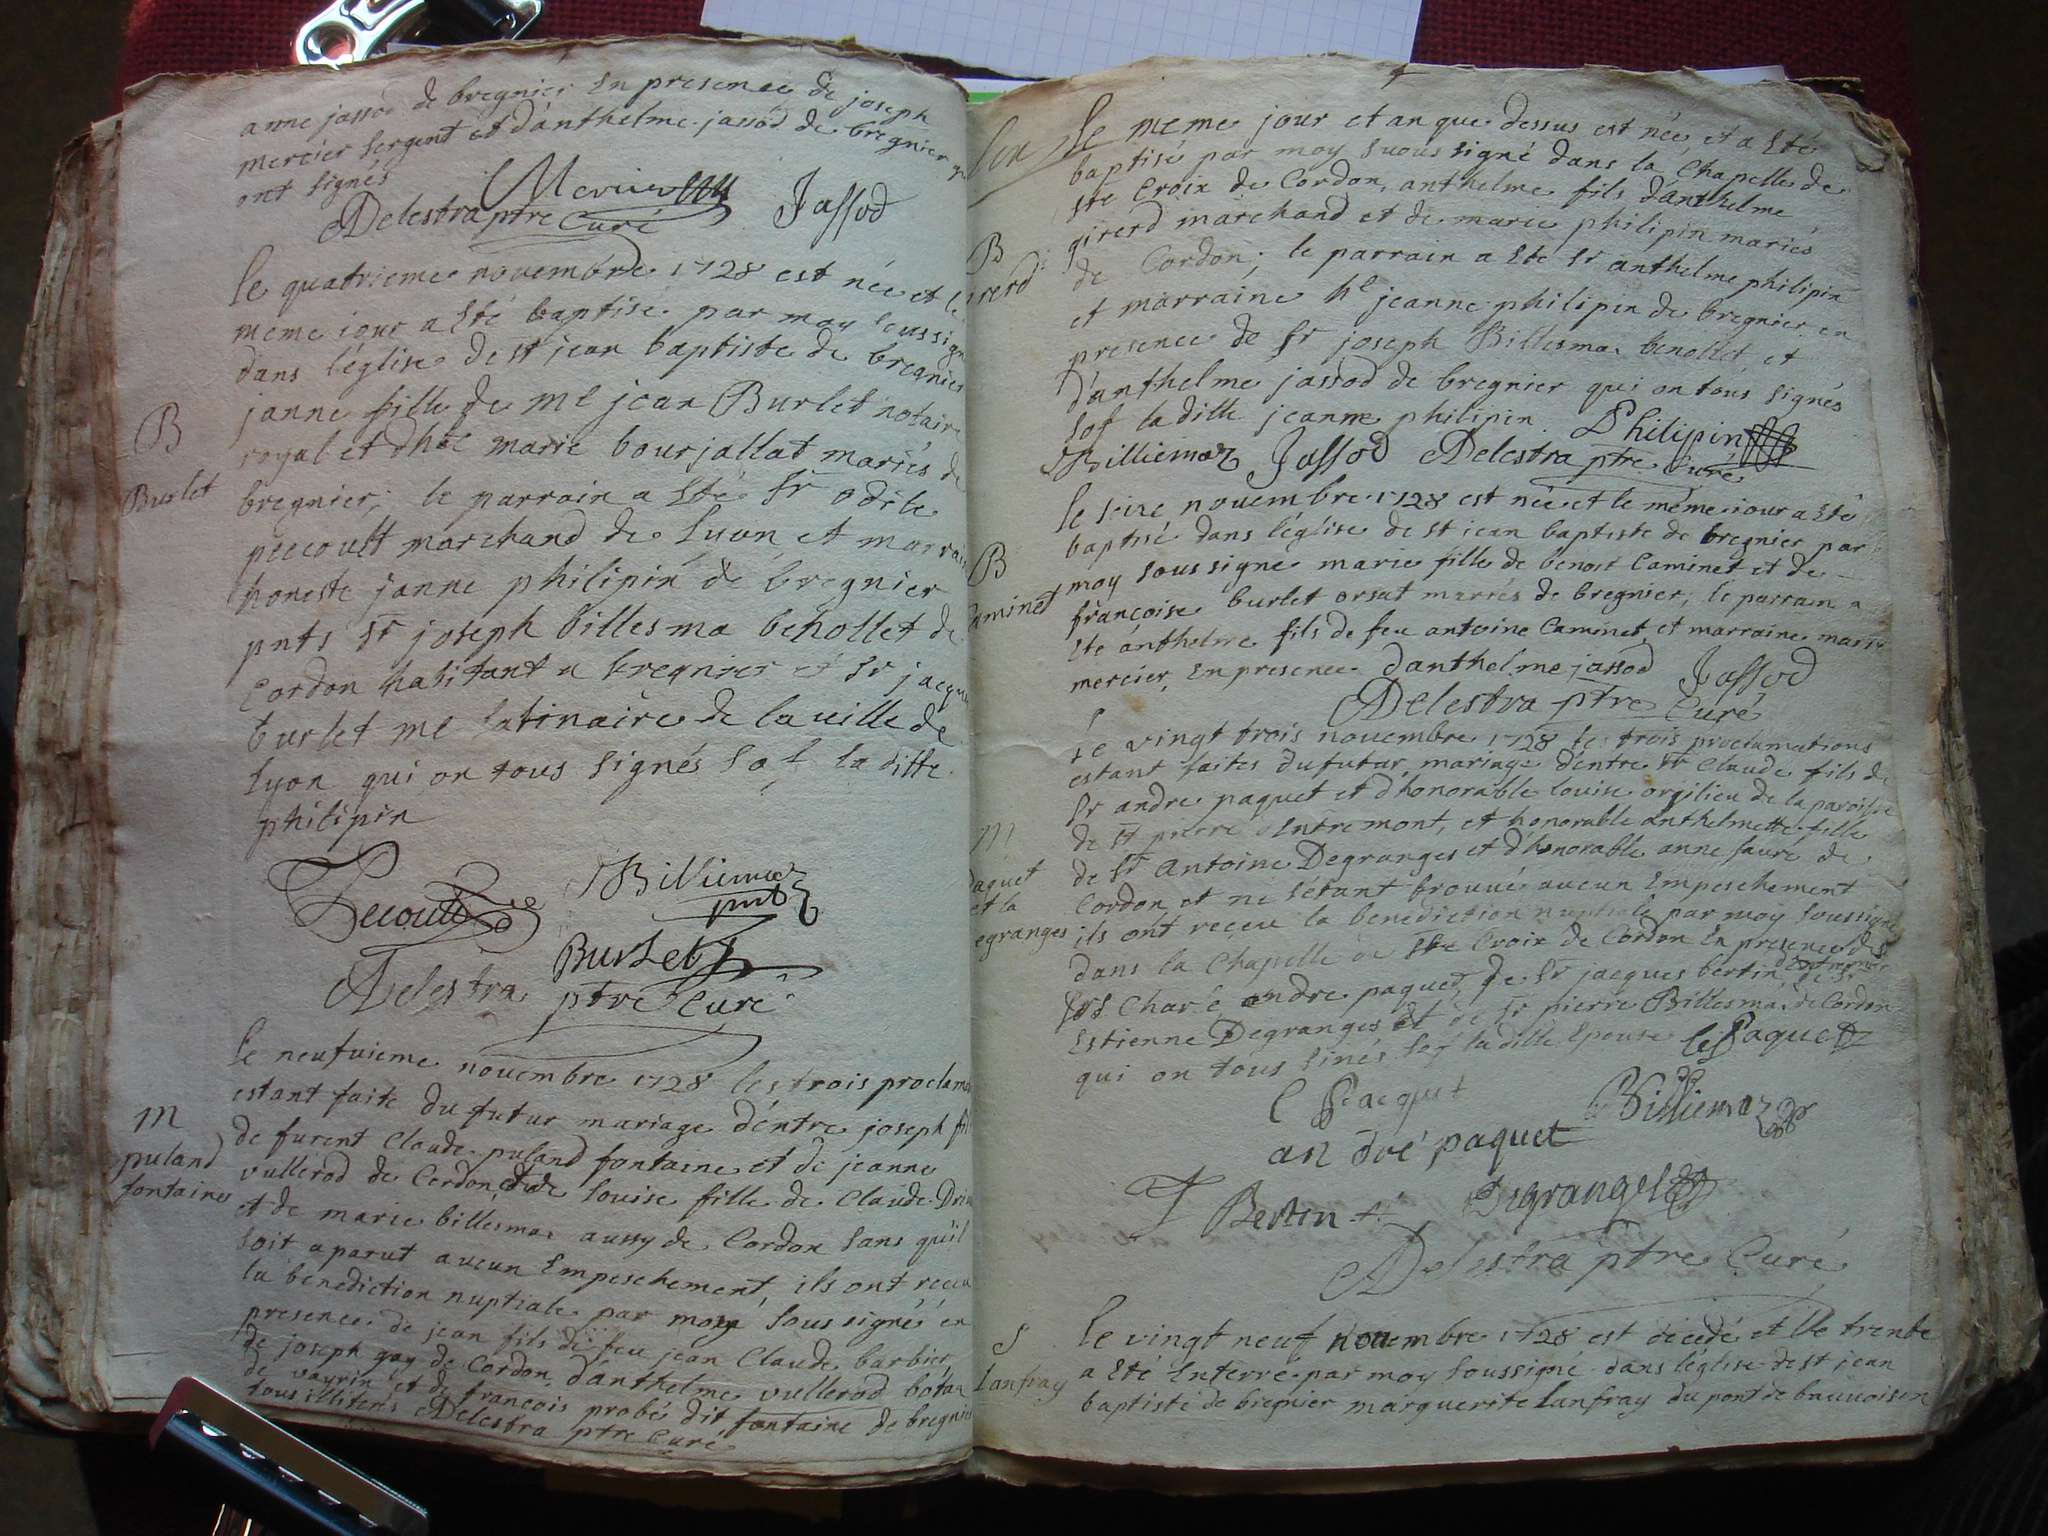 anne jassod de bregnier En presence de joseph
mercier sergent et d'anthelme jassod de bregnier qui
ont signés
Mercier
Delestra ptre Curé Jassod
le quatrieme novembre 1728 est née et le
meme jour a Eté baptisé par moy soussigné
dans l'église de st jean baptiste de bregnier
B
janne fille de me jean Burlet notaire
royal et d'hte marie bourjallat mariés de
Burlet
bregnier; le parrain a Eté Sr odile
pecoult marchand de Lyon et marraine
honeste janne philipin de bregnier
pnts Sr joseph billesma benollet de
Cordon habitant a bregnier et Sr jacques
burlet me latinaire de la ville de
lyon qui on tous signés Sof la ditte
philipin
Pecoult Billiemaz
pnt
Burlet
Delestra ptre Curé
le neufvieme novembre 1728 les trois proclama
estant faite du futur mariage d'entre joseph fils
m
de furent Claude puland fontaine et de jeanne
puland
vullerod de Cordon, et de louise fille de Claude
fontaine
et de marie billesmas aussy de Cordon sans qu'il
soit aparut aucun Empeschement, ils ont receu
la benediction nuptiale par moy soussigné en
presence de jean fils de feu jean Claude barbier
de joseph gay de Cordon, d'anthelme vullerod
de vayrin et de francois probés dit fontaine de bregnier
tous illiterés Delestra ptre Curé
le meme jour et an que dessus est née, et a Eté
baptisé par moy suous signé dans la Chapelle de
ste Croix de Cordon, anthelme fils d'anthelme
girerd marchand et de marie philipin mariés
B
de Cordon; le parrain a ete Sr anthelme philipin
girerd
et marraine he jeanne philipin de bregnier en
presence de Sr joseph Billesmas benollet et
d'anthelme jassod de bregnier qui on tous signés
sof la ditte jeanne philipin. Philipin
Billiemaz Jassod Delestra ptre Curé
le novembre 1728 est née et le même jour a Eté
baptisé dans l'église de st jean baptiste de bregnier par
B
moy soussigné marie fille de benoit Caminet et de
Caminet
françoise burlet orsat mariés de bregnier; le parrain a
Eté anthelme fils de feu antoine Caminet, et marraine marie
mercier, En presence d'anthelme jassod Jassod
Delestra ptre Curé
Le vingt trois novembre 1728 les trois proclamations
estant faites du futur mariage d'entre Sr Claude fils de
Sr andre paquet et d'honorable louise orgilieu de la paroisse
m
de st pierre d'Entremont, et honorable anthelmette fille
paquet
de Sr Antoine Degranges et d'honorable anne faure de
et la
Cordon et ne s'etant trouvé aucun Empeschement
degranges
ils ont receu la benediction nuptiale par moy soussigné
dans la Chapelle de Ste Croix de Cordon En presence des
Srs andre paquet, de Sr jacques bertin d'Entremont, de Sr
Estienne Degranges et de Sr pierre Billesmas de Cordon
qui on tous sinés sof la ditte Epouse Paquet
C Pacquet Billiemaz
andré paquet
J Bertin Degranges
Delestra ptre Curé
S
le vingt neuf novembre 1728 est décedé et le trente
Lanfray
a Eté Enterré par moy soussigné dans l'église de st jean
baptiste de bregnier marguerite Lanfray du pont de beauvoisin